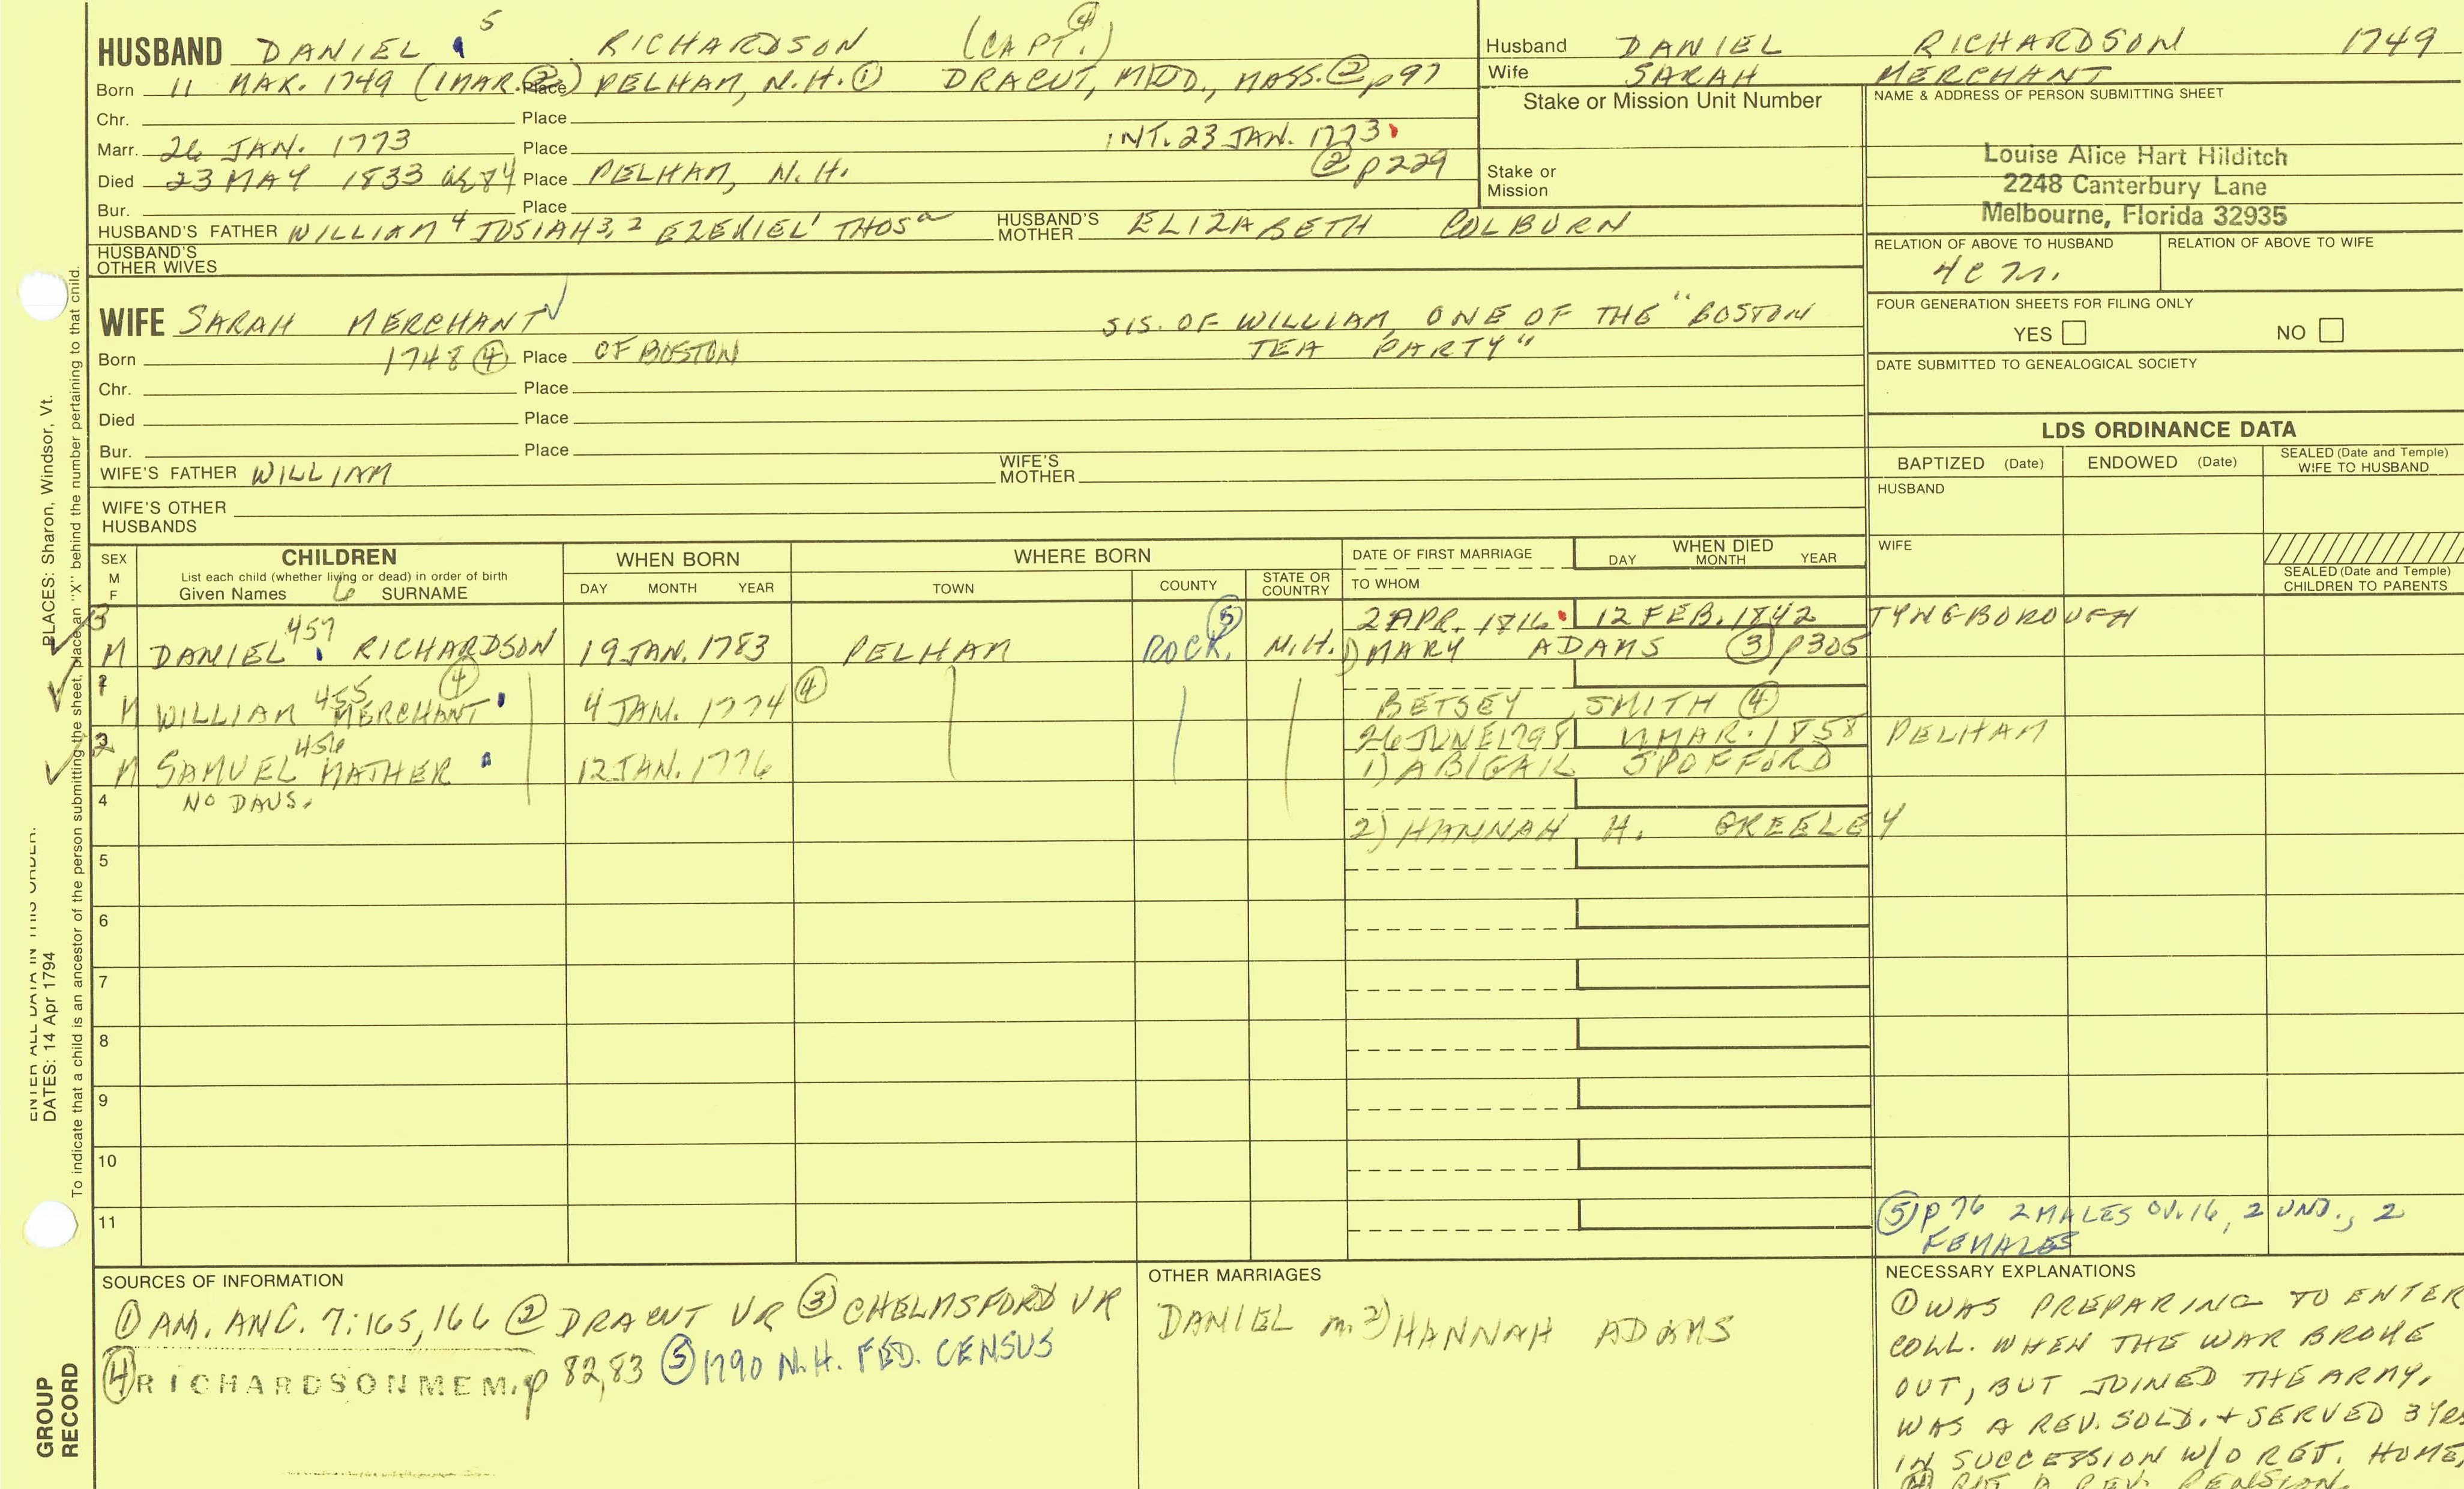 5
HUSBAND DANIEL RICHARDSON (CAPT.) ④
Born 11 MAR. 1749 (1 MAR. ②) Place PELHAM, N.H. ① DRACUT, MIDD., MASS. ② p97
Chr. Place
Marr. 26 JAN. 1773 Place INT. 23 JAN. 1773
② p229
Died 23 MAY 1833 ae 84 Place PELHAM, N.H.
Bur. Place
HUSBAND'S FATHER WILLIAM⁴ JOSIAH³,² EZEKIEL¹ THOSᵃ HUSBAND'S MOTHER ELIZABETH COLBURN
HUSBAND'S OTHER WIVES
Husband DANIEL RICHARDSON 1749
Wife SARAH MERCHANT
Stake or Mission Unit Number
Stake or Mission
NAME & ADDRESS OF PERSON SUBMITTING SHEET
Louise Alice Hart Hilditch
2248 Canterbury Lane
Melbourne, Florida 32935
RELATION OF ABOVE TO HUSBAND RELATION OF ABOVE TO WIFE
FOUR GENERATION SHEETS FOR FILING ONLY
YES NO
DATE SUBMITTED TO GENEALOGICAL SOCIETY
WIFE SARAH MERCHANT SIS. OF WILLIAM, ONE OF THE "BOSTON
TEA PARTY"
Born 1748 ④ Place OF BOSTON
Chr. Place
Died Place
Bur. Place
WIFE'S FATHER WILLIAM WIFE'S MOTHER
WIFE'S OTHER HUSBANDS
LDS ORDINANCE DATA
BAPTIZED (Date) ENDOWED (Date) SEALED (Date and Temple) WIFE TO HUSBAND
HUSBAND
WIFE
SEALED (Date and Temple) CHILDREN TO PARENTS
SEX M F
CHILDREN
List each child (whether living or dead) in order of birth
Given Names 6 SURNAME
WHEN BORN
DAY MONTH YEAR
WHERE BORN
TOWN COUNTY STATE OR COUNTRY
DATE OF FIRST MARRIAGE
TO WHOM
WHEN DIED
DAY MONTH YEAR
3 457 ⑤ 2 APR. 1816 12 FEB. 1842 TYNGBOROUGH
M DANIEL RICHARDSON 19 JAN. 1783 PELHAM ROCK. N.H. 1) MARY ADAMS ③ p305
455 ④
M WILLIAM MERCHANT 4 JAN. 1774 ④ BETSEY SMITH ④
456 26 JUNE 1798 MAR. 1858 PELHAM
M SAMUEL MATHER 12 JAN. 1776 1) ABIGAIL SPOFFORD
4 NO DAUS.
2) HANNAH H. GREELEY
5
6
7
8
9
10
11
⑤ p 76 2 MALES OV. 16, 2 UND., 2
FEMALES
SOURCES OF INFORMATION
① AM. ANC. 7:165,166 ② DRACUT VR ③ CHELMSFORD VR
④ RICHARDSON MEM. p 82,83 ⑤ 1790 N.H. FED. CENSUS
OTHER MARRIAGES
DANIEL m. 2) HANNAH ADAMS
NECESSARY EXPLANATIONS
① WAS PREPARING TO ENTER
COLL. WHEN THE WAR BROKE
OUT, BUT JOINED THE ARMY.
WAS A REV. SOLD. + SERVED 3 YRS
IN SUCCESSION W/O RET. HOME,
A REV. PENSION
PLACES: Sharon, Windsor, Vt.
To indicate that a child is an ancestor of the person submitting the sheet, place an "X" behind the number pertaining to that child.
ENTER ALL DATA IN THIS ORDER:
DATES: 14 Apr 1794
GROUP RECORD